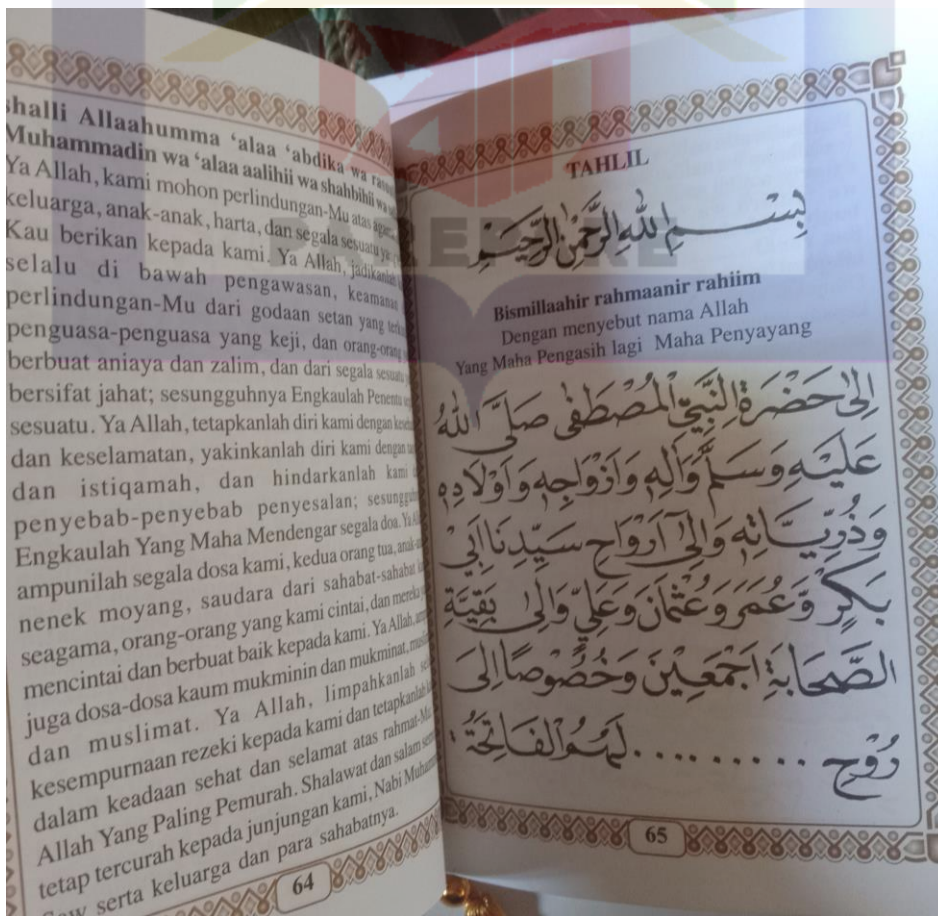 shalli Allaahumma ‘alaa ‘abdika wa
Muhammadin wa ‘alaa aalihii wa shahbihii wa
Ya Allah, kami mohon perlindungan-Mu atas
keluarga, anak-anak, harta, dan segala sesuatu
Kau berikan kepada kami. Ya Allah, jadikanlah
selalu di bawah pengawasan, keamanan
perlindungan-Mu dari godaan setan yang
penguasa-penguasa yang keji, dan orang-orang
berbuat aniaya dan zalim, dan dari segala sesuatu
bersifat jahat; sesungguhnya Engkaulah Penentu
sesuatu. Ya Allah, tetapkanlah diri kami dengan
dan keselamatan, yakinkanlah diri kami dengan
dan istiqamah, dan hindarkanlah kami
penyebab-penyebab penyesalan;
Engkaulah Yang Maha Mendengar segala doa. Ya
ampunilah segala dosa kami, kedua orang tua,
nenek moyang, saudara dari sahabat-sahabat
seagama, orang-orang yang kami cintai, dan mereka
mencintai dan berbuat baik kepada kami. Ya Allah,
juga dosa-dosa kaum mukminin dan mukminat,
dan muslimat. Ya Allah, limpahkanlah
kesempurnaan rezeki kepada kami dan tetapkanlah
dalam keadaan sehat dan selamat atas rahmat-Mu
Allah Yang Paling Pemurah. Shalawat dan salam
tetap tercurah kepada junjungan kami, Nabi
serta keluarga dan para sahabatnya.
64
TAHLIL
بِسْمِ اللهِ الرَّحْمٰنِ الرَّحِيْمِ
PAREPARE
Bismillaahir rahmaanir rahiim
Dengan menyebut nama Allah
Yang Maha Pengasih lagi Maha Penyayang
اِلٰى حَضْرَةِ النَّبِيِّ الْمُصْطَفٰى صَلَّى اللهُ
عَلَيْهِ وَسَلَّمَ وَاٰلِهِ وَاَزْوَاجِهِ وَاَوْلَادِهِ
وَذُرِّيَّاتِهِ وَاِلٰى اَرْوَاحِ سَيِّدِنَا اَبِيْ
بَكْرٍ وَّعُمَرَ وَعُثْمَانَ وَعَلِيٍّ وَاِلٰى بَقِيَّةِ
الصَّحَابَةِ اَجْمَعِيْنَ وَخُصُوْصًا اِلٰى
رُوْحِ .......... لَهُمُ الْفَاتِحَةُ .
65